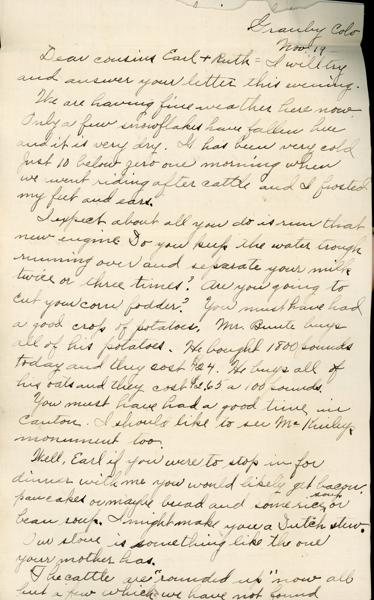 Granby Colo
Nov. 19
Dear cousins Earl + Ruth = I will try
and answer your letter this evening.
We are having fine weather here now.
Only a few snowflakes have fallen here
and it is very dry. It has been very cold
just 10 below zero one morning when
we went riding after cattle and I frosted
my feet and ears.
I expect about all you do is run that
new engine. Do you keep the water trough
running over and separate your milk
twice or three times? Are you going to
cut your corn fodder? You must have had
a good crop of potatoes. Mr. Bunte buys
all of his potatoes. He bought 1800 pounds
today and they cost $24. He buys all of
his oats and they cost $2.65 a 100 pounds.
You must have had a good time in
Canton. I should like to see McKinley
monument too.
Well, Earl if you were to stop in for
dinner with me you would likely get bacon,
pancakes or maybe bread and some rice soup or
bean soup. I might make you a Dutch stew.
Our stove is something like the one
your mother has.
The cattle are "rounded up" now all
but a few which we have not found